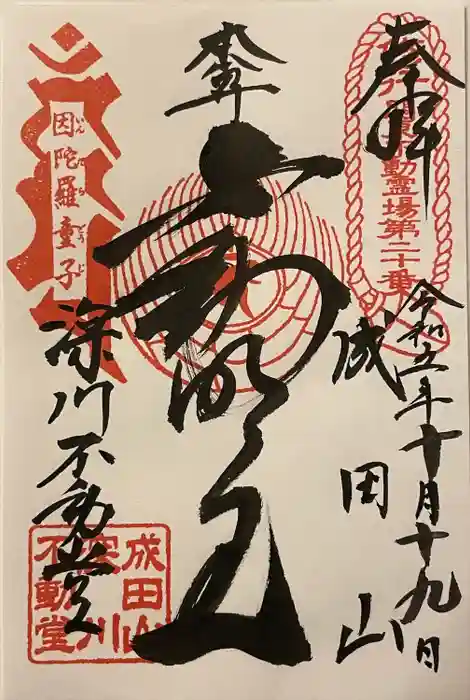 奉拝
不動霊場第二十番
令和五年十月十九日
成田山
不動明王
因陀羅童子
深川不動堂
成田山
深川
不動堂